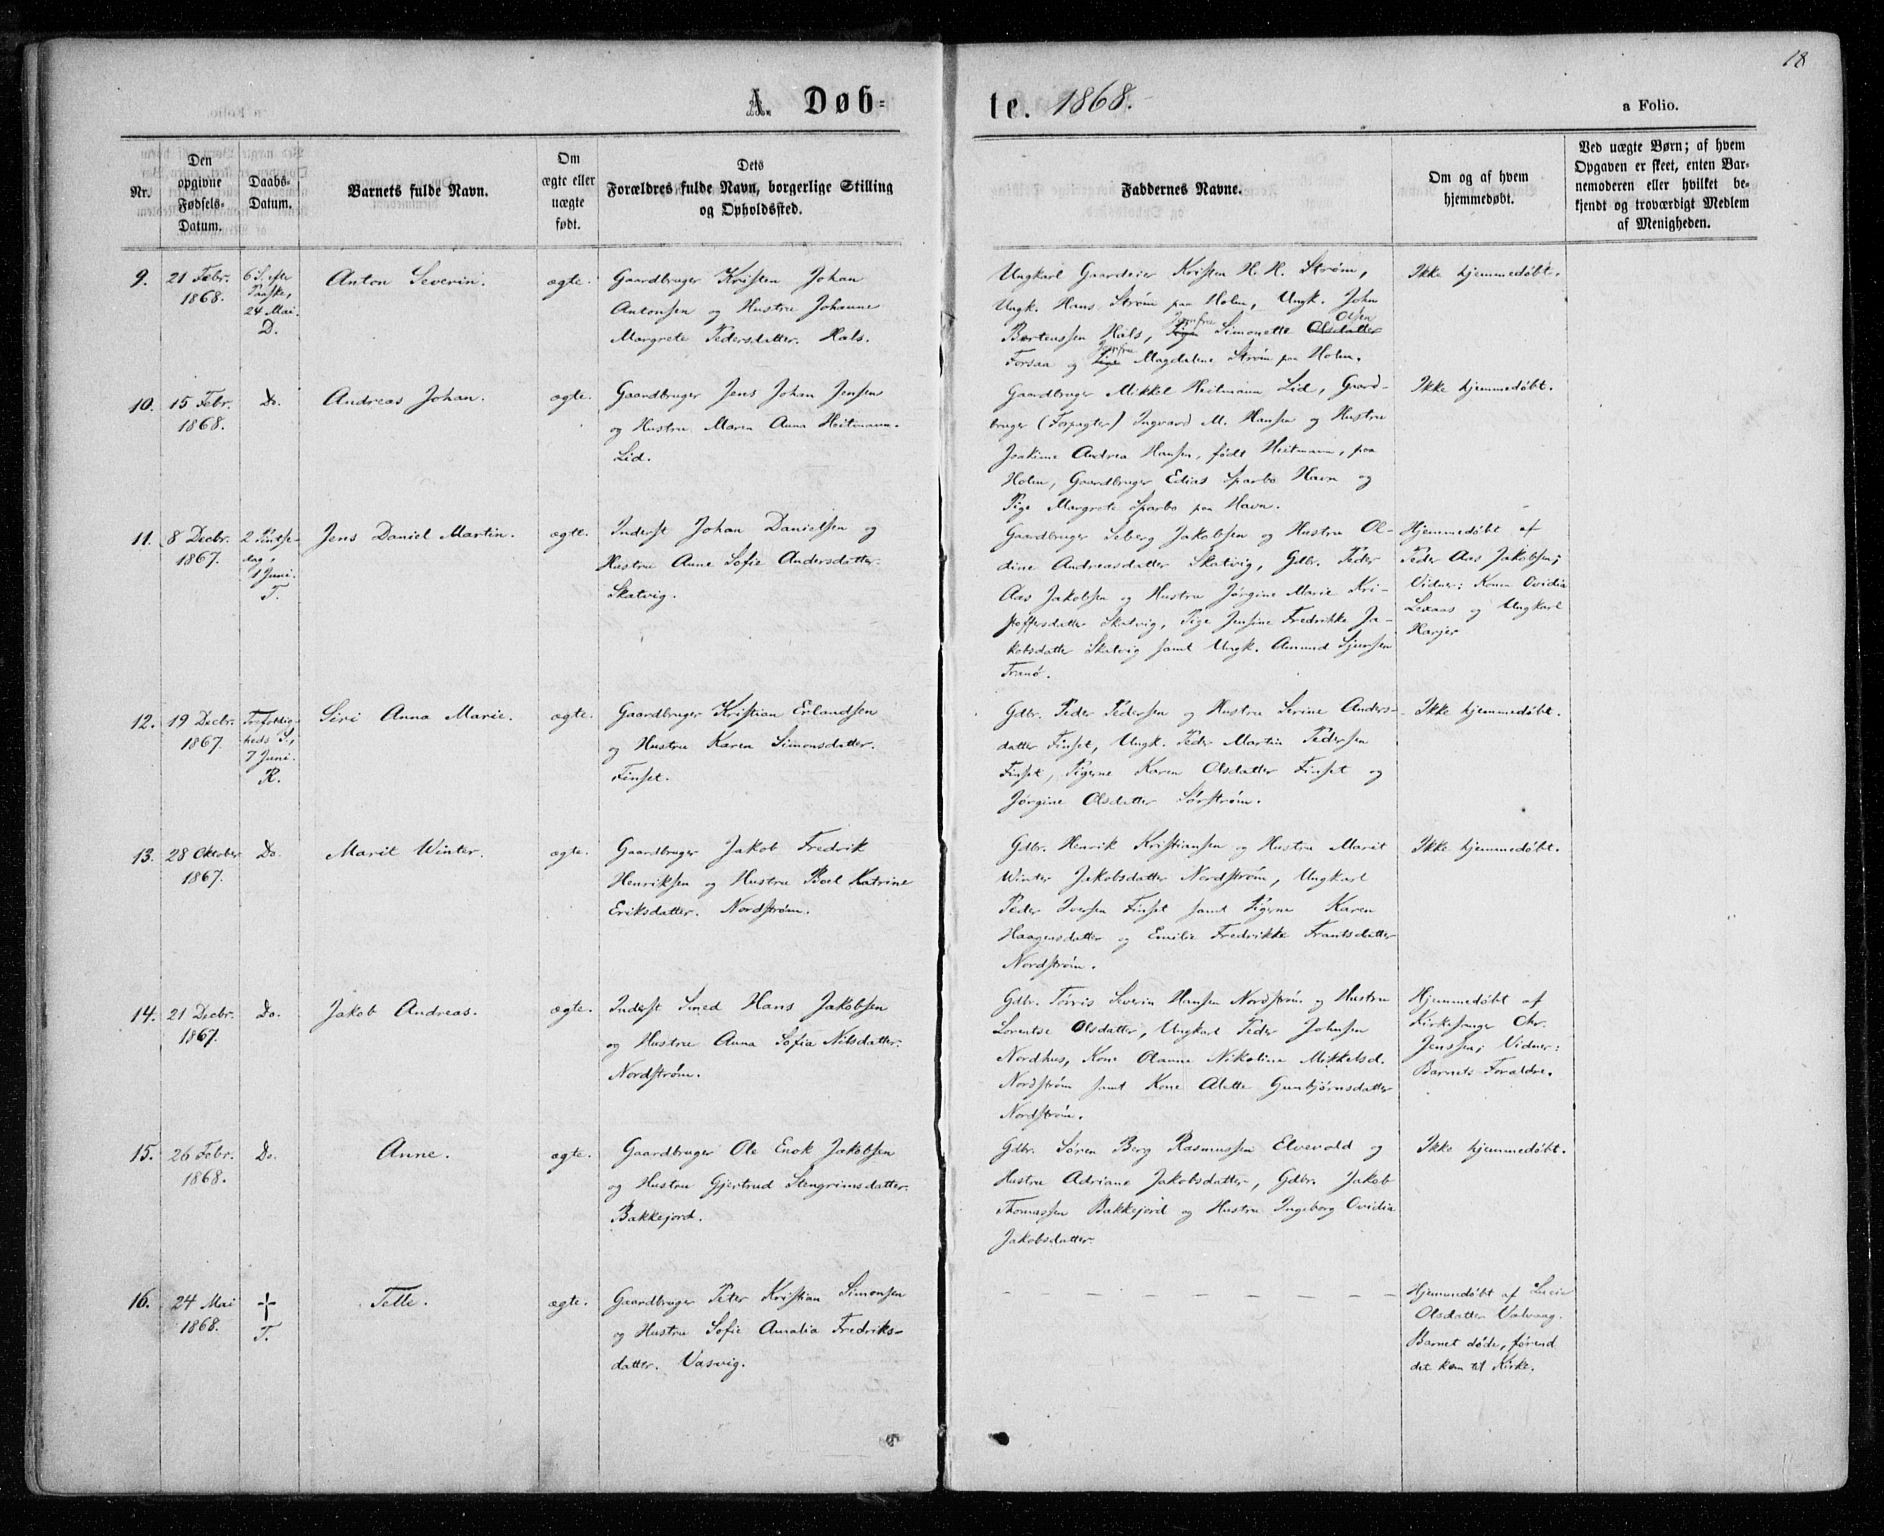 18
A. Døb-
te. 1868.
a Folio.
Nr.
Den opgivne Fødsels-Datum.
Daabs-Datum.
Barnets fulde Navn.
Om ægte eller uægte født.
Dets Forældres fulde Navn, borgerlige Stilling og Opholdssted.
Faddernes Navne.
Om og af hvem hjemmedøbt.
Ved uægte Børn; af hvem Opgaven er skeet, enten Barnemoderen eller hvilket bekjendt og troværdigt Medlem af Menigheden.
9.
21 Febr.
1868.
6 S. efter
Paaske,
24 Mai.
D.
Anton Severin.
ægte.
Gaardbruger Kristen Johan
Antonsen og Hustru Johanne
Margrete Pedersdatter. Hals.
Ungkarl Gaardeier Kristen H. H. Strøm,
Ungk. Hans Strøm paa Holm, Ungk. John
Jomfru Olsen
Bertenssen Hals, Pige Simonette Olsdatter
Jomfru
Forsaa og Pige Magdalene Strøm paa Holm.
Ikke hjemmedøbt.
10.
15 Febr.
1868.
Do.
Andreas Johan.
ægte.
Gaardbruger Jens Johan Jensen
og Hustru Maren Anna Heitmann.
Lid.
Gaardbruger Mikkel Heitmann Lid, Gaard-
bruger (Forpagter) Ingvard M. Hansen og Hustru
Joakime Andrea Hansen, født Heitmann, paa
Holm, Gaardbruger Edias Sparbo Havn og
Pige Margrete Sparbo paa Havn.
Ikke hjemmedøbt.
11.
8 Decbr.
1867.
2 Pintse-
dag,
1 Juni.
T.
Jens Daniel Martin.
ægte.
Inderst Johan Danielsen og
Hustru Anne Sofie Andersdatter.
Skatvig.
Gaardbruger Seberg Jakobsen og Hustru Ol-
dine Andreasdatter Skatvig, Gdbr. Peder
Aas Jakobsen og Hustru Jørgine Marie Kri-
stoffersdatter Skatvig, Pige Jensine Fredrikke Ja-
kobsdatter Skatvig samt Ungk. Amund Sjursen
Tranø.
Hjemmedøbt af
Peder Aas Jakobsen;
Vidner: Konen Ovidia
Lexaas og Ungkarl
12.
19 Decbr.
1867.
Trefoldig-
heds S,
7 Juni.
R.
Siri Anna Marie.
ægte.
Gaardbruger Kristian Erlandsen
og Hustru Karen Simonsdatter.
Finset.
Gdbr. Peder Pedersen og Hustru Serine Anders-
datter Finset, Ungk. Peder Martin Pedersen
Finset, Pigerne Karen Olsdatter Finset og
Jørgine Olsdatter Sørstrøm.
Ikke hjemmedøbt.
13.
28 Oktober
1867.
Do.
Marit Winter.
ægte.
Gaardbruger Jakob Fredrik
Henriksen og Hustru Boel Katrine
Eriksdatter. Nordstrøm.
Gdbr. Henrik Kristiansen og Hustru Marit
Winter Jakobsdatter Nordstrøm, Ungkarl
Peder Iversen Finset samt Pigerne Karen
Haagensdatter og Emilie Fredrikke Frantsdatter
Nordstrøm.
Ikke hjemmedøbt.
14.
21 Decbr.
1867.
Do.
Jakob Andreas.
ægte.
Inderst Smed Hans Jakobsen
og Hustru Anna Sofia Nilsdatter.
Nordstrøm.
Gdbr. Torris Severin Hansen Nordstrøm og Hustru
Lorentse Olsdatter, Ungkarl Peder Johnsen
Nordhus, Kone Olaune Nikoline Mikkelsd.
Nordstrøm samt Kone Alette Gunbjørnsdatter
Nordstrøm.
Hjemmedøbt af
Kirkesanger Chr.
Jenssen; Vidner:
Barnets Forældre.
15.
26 Febr.
1868.
Do.
Anne.
ægte.
Gaardbruger Ole Enok Jakobsen
og Hustru Gjertrud Stengrimsdatter.
Bakkejord.
Gdbr. Søren Berg Rasmussen Elvevold og
Hustru Adriane Jakobsdatter, Gdbr. Jakob
Thomassen Bakkejord og Hustru Ingeborg Ovidia
Jakobsdatter.
Ikke hjemmedøbt.
16.
24 Mai
1868.
†
T.
Telle.
ægte.
Gaardbruger Peter Kristian Simonsen
og Hustru Sofie Amalia Fredriks-
datter. Vasvig.
– – – – – – – – –
Hjemmedøbt af Lucie
Olsdatter Valvaag.
Barnet døde, førend
det kom til Kirke.